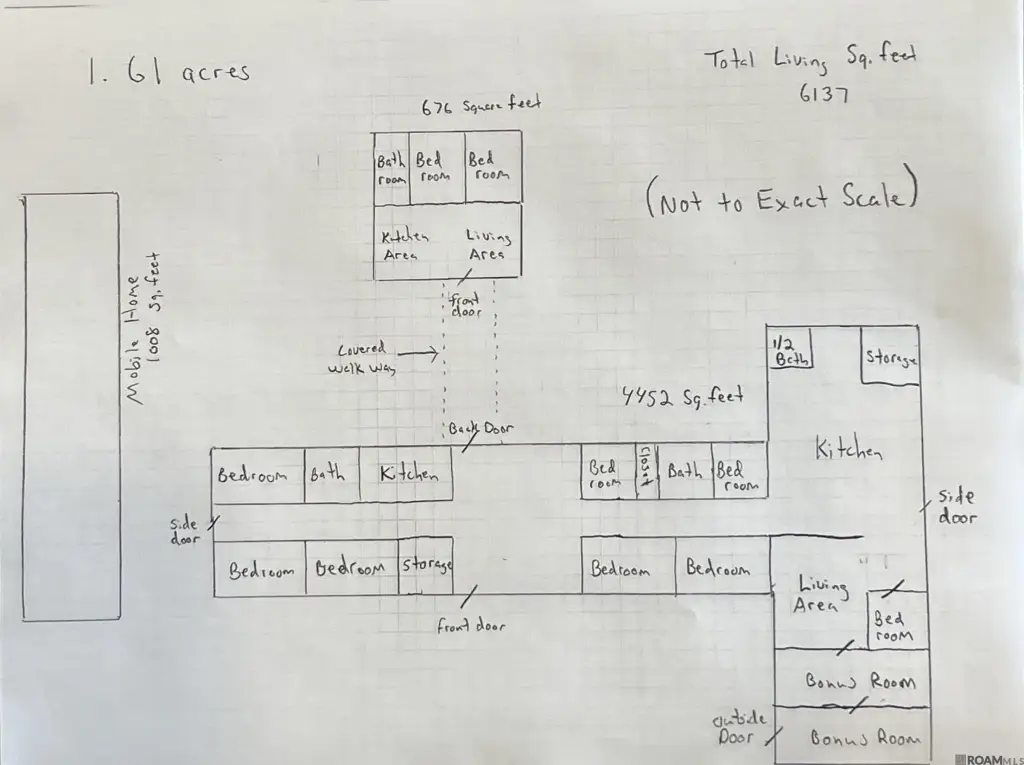 1.61 acres
Total Living Sq. feet
6137
676 Square feet
Bath
room
Bed
room
Bed
room
Kitchen
Area
Living
Area
(Not to Exact Scale)
front
door
Mobile Home
1008 Sq. feet
Covered
Walk Way
Back Door
4452 Sq. feet
1/2
Bath
Storage
Kitchen
side
door
Bedroom
Bath
Kitchen
Bed
room
Closet
Bath
Bed
room
side
door
Bedroom
Bedroom
Storage
Bedroom
Bedroom
front door
Living
Area
Bed
room
Bonus Room
outside
Door
Bonus Room
ROAMMLS